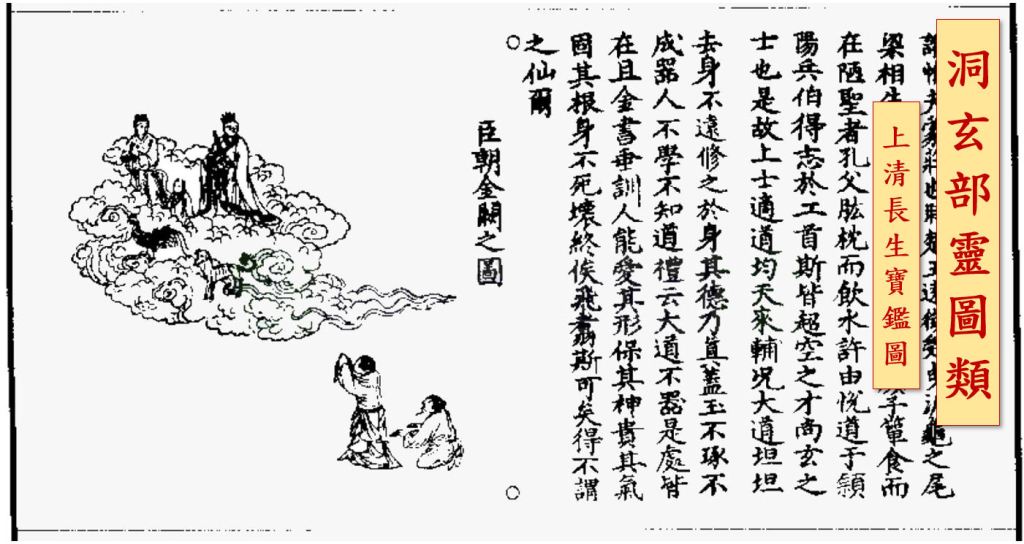 洞玄部靈圖類
上清長生寶鑑圖
之尾
梁相子簞食而
在陋聖者孔父肱枕而飲水許由悅道于潁
陽兵伯得志於工首斯皆超空之才尚玄之
士也是故上士適道均天來輔況大道坦坦
去身不遠修之於身其德乃真蓋玉不琢不
成器人不學不知道禮云大道不器是處皆
在且金書垂訓人能愛其形保其神貴其氣
固其根身不死壞終俟飛翥斯可矣得不謂
之仙爾
臣朝金闕之圖